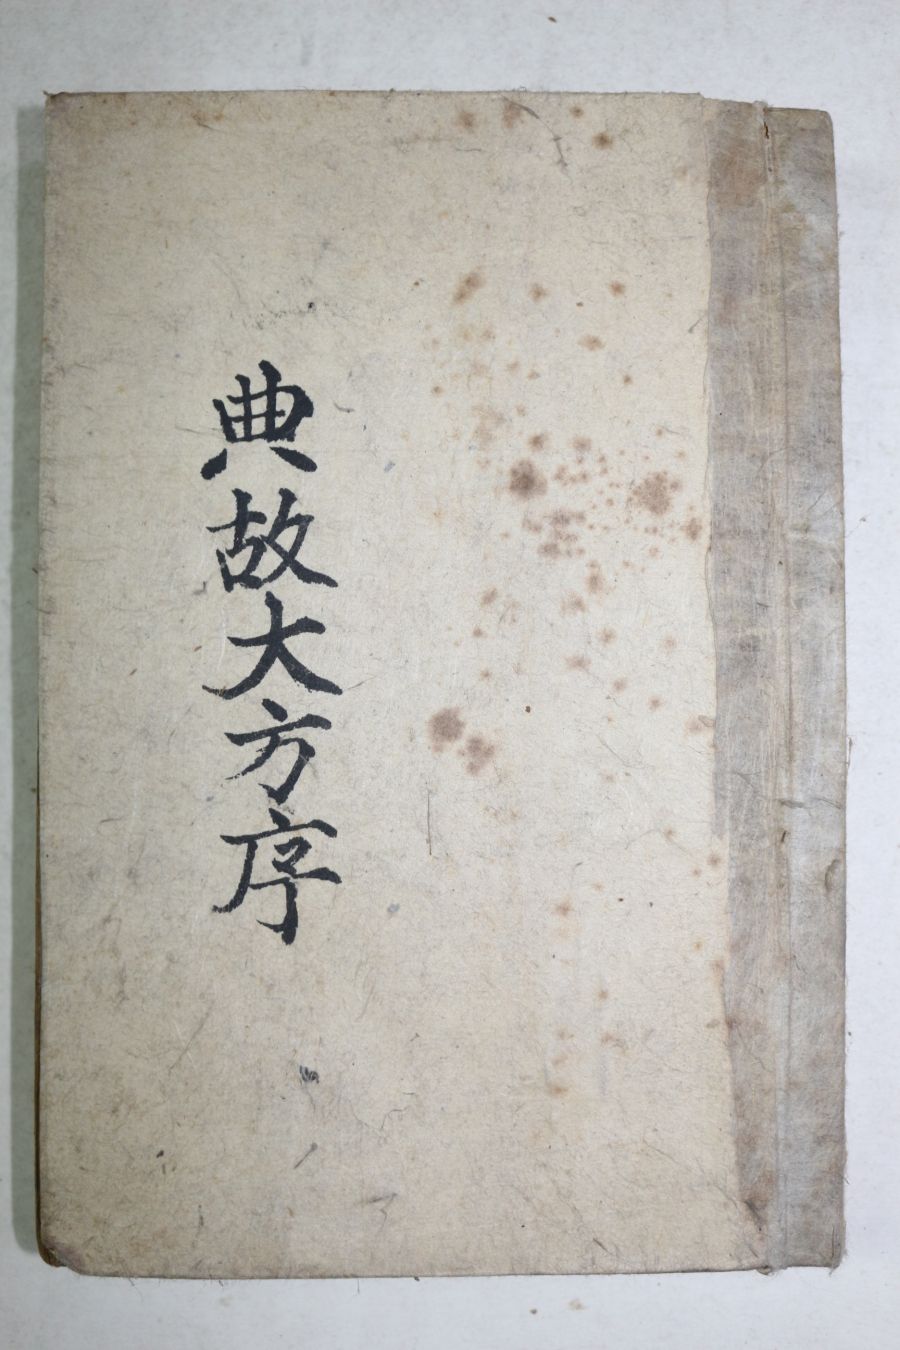 典故大方序